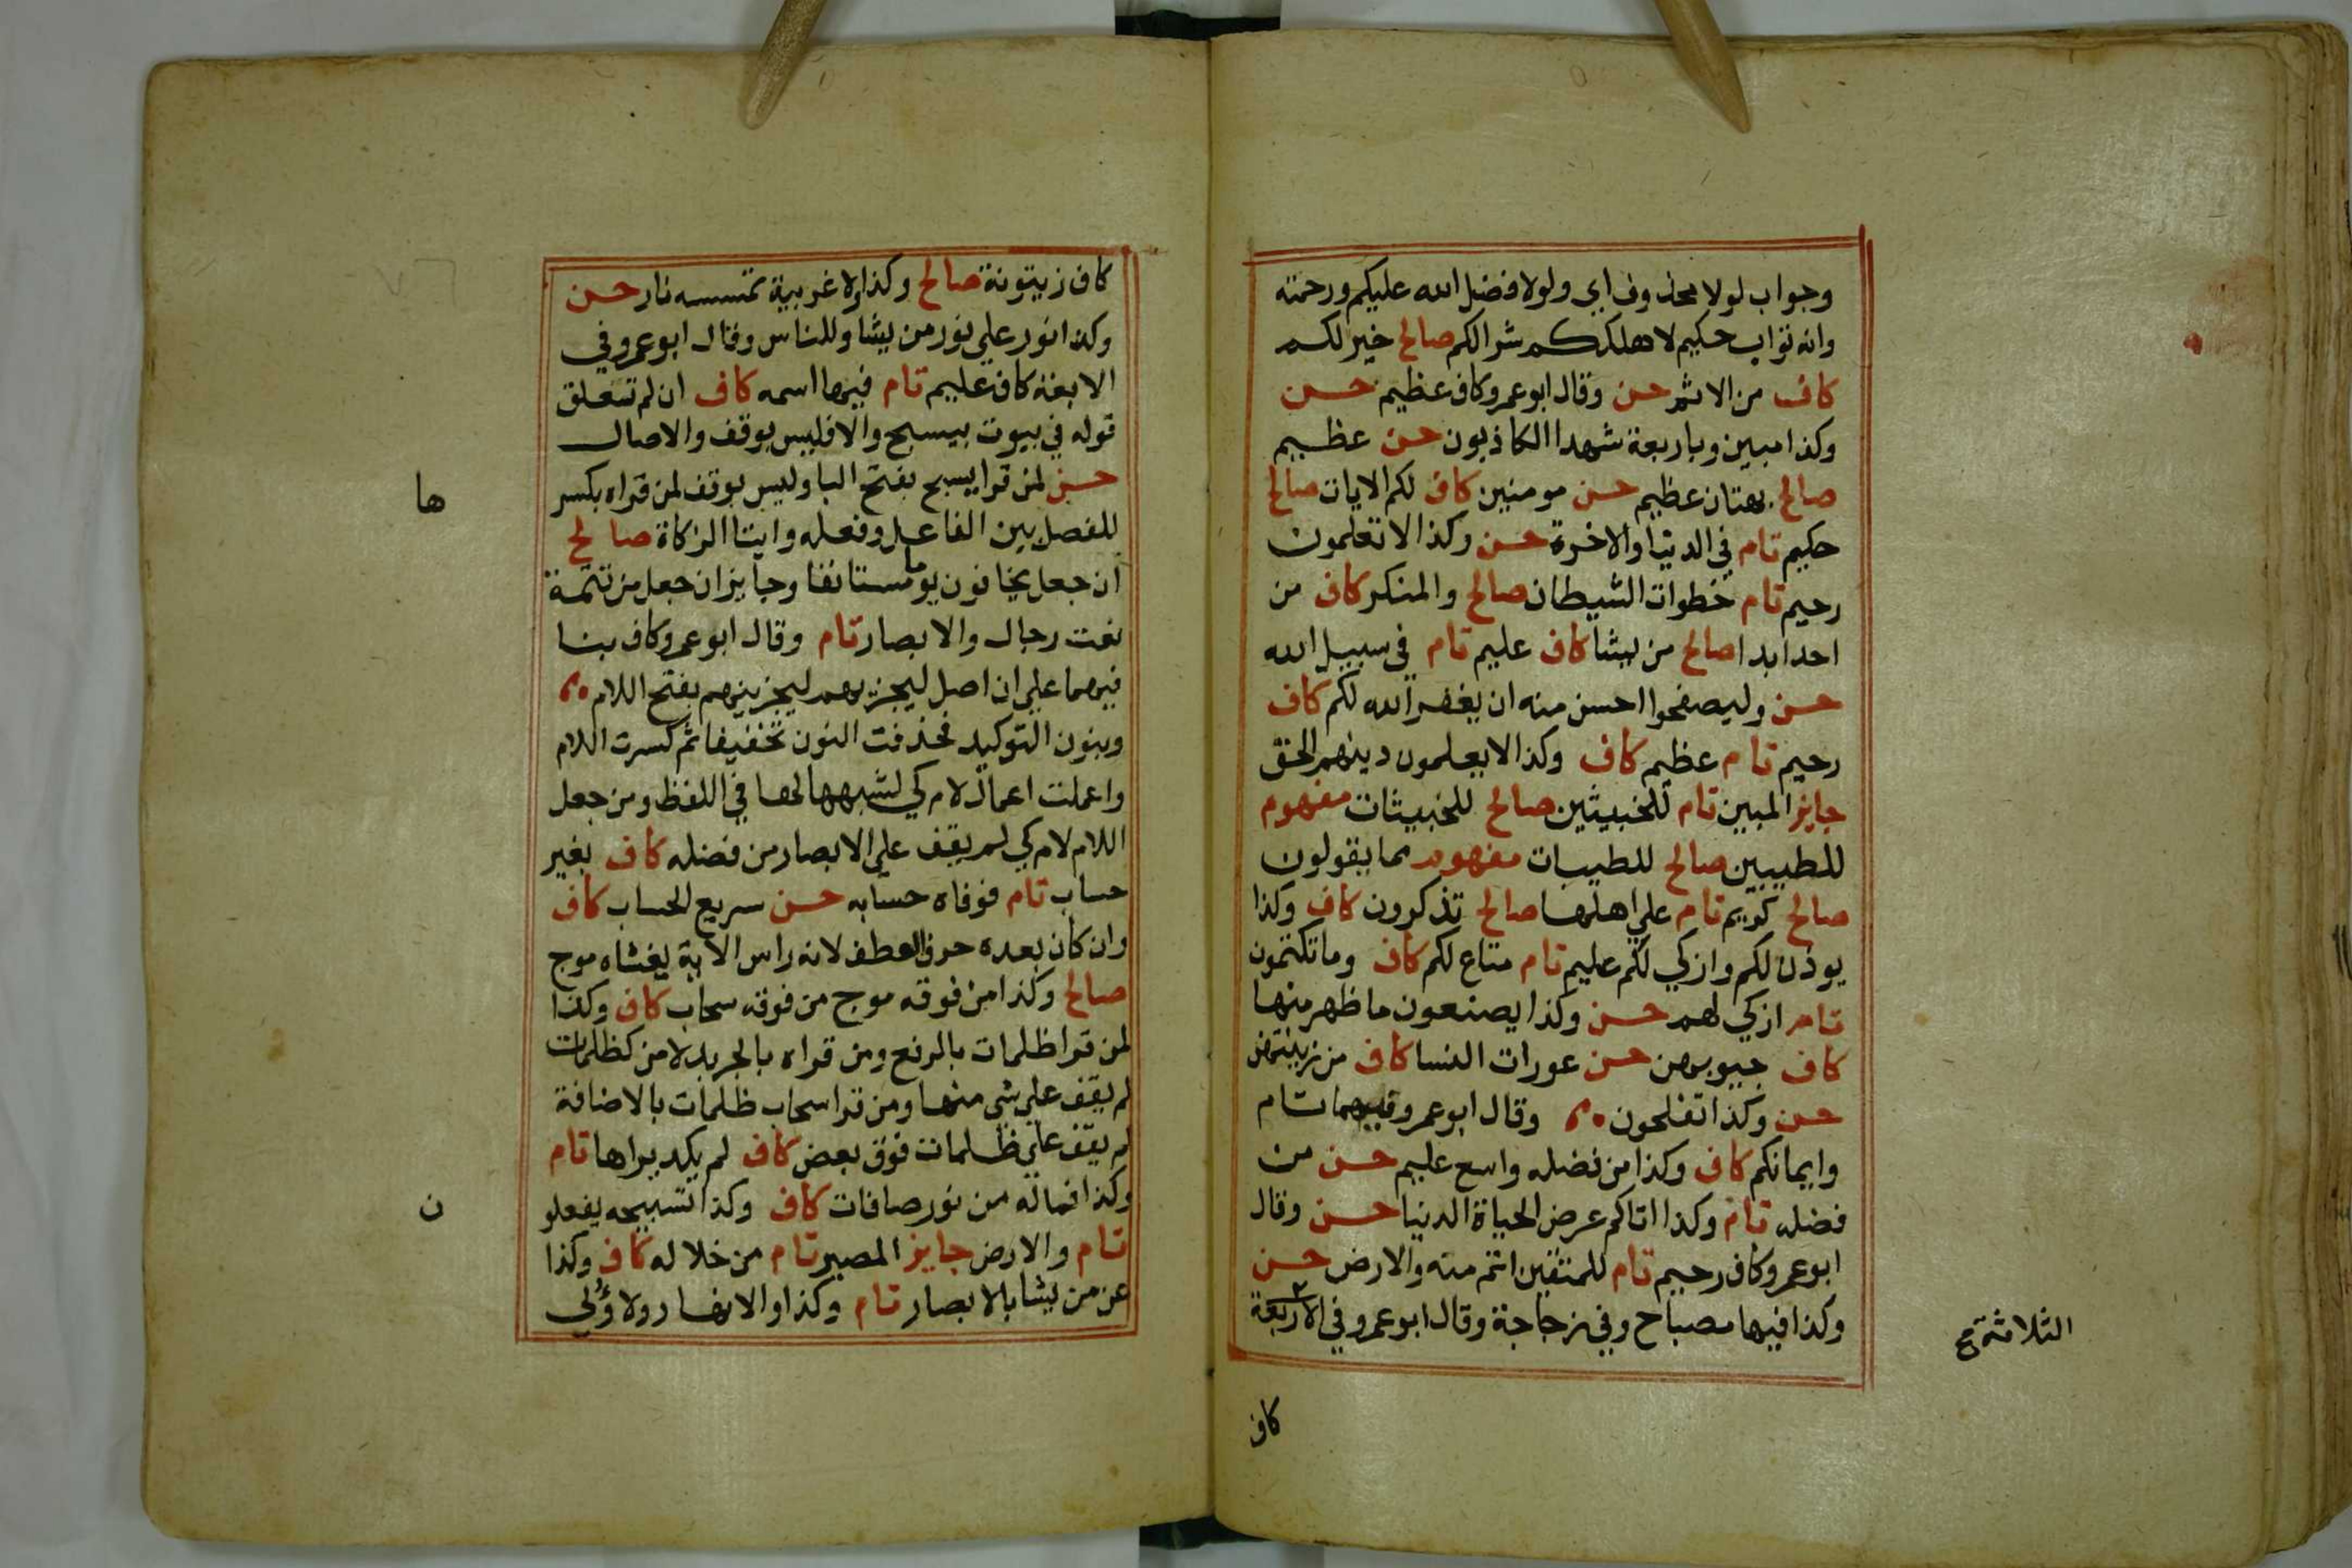 وجواب لولا محذوف اي ولولا فضل الله عليكم ورحمته
وانه تواب حكيم لاهلككم شرا لكم صالح خير لكم
كاف من الاثم حسن وقال ابو عمرو كاف عظيم حسن
وكذا مبين وباربعة شهدا الكاذبون حسن عظيم
صالح بهتان عظيم حسن مومنين كاف لكم الايات صالح
حكيم تام في الدنيا والاخرة حسن وكذا لا تعلمون
رحيم تام خطوات الشيطان صالح والمنكر كاف من
احد ابدا صالح من يشا كاف عليم تام في سبيل الله
حسن وليصفحوا احسن منه ان يغفر الله لكم كاف
رحيم تام عظيم كاف وكذا لا يعلمون دينهم الحق
جايز المبين تام للخبيثين صالح للخبيثات مفهوم
للطيبين صالح للطيبات مفهوم مما يقولون
صالح كريم تام علي اهلها صالح تذكرون كاف وكذا
يوذن لكم وازكي لكم عليم تام متاع لكم كاف وما تكتمون
تام ازكي لهم حسن وكذا يصنعون ما ظهر منها
كاف جيوبهن حسن عورات النسا كاف من زينتهن
حسن وكذا تفلحون وقال ابو عمرو فيهما تام
وايمانكم كاف وكذا من فضله واسع عليم حسن من
فضله تام وكذا اتاكم عرض الحياة الدنيا حسن وقال
ابو عمرو كاف رحيم تام للمتقين اتم منه والارض حسن
وكذا فيها مصباح وفي زجاجة وقال ابو عمرو في الاربعة
الثلاثة
كاف
كاف زيتونة صالح وكذا ولا غربية تمسسه نار حسن
وكذا نور علي نور من يشا وللناس وقال ابو عمرو في
الاربعة كاف عليم تام فيها اسمه كاف ان لم تتعلق
قوله في بيوت بيسبح والا فليس بوقف والاصال
حسن لمن قرا يسبح بفتح البا وليس بوقف لمن قراه بكسر
ها
للفصل بين الفاعل وفعله وايتا الزكاة صالح
ان جعل يخافون يوما مستانفا وجايز ان جعل من تتمة
نعت رجال والابصار تام وقال ابو عمرو كاف بنا
فيهما علي ان اصل ليجزيهم ليجزينهم بفتح اللام
وبنون التوكيد فحذفت النون تخفيفا ثم كسرت اللام
واعملت اعمال لام كي لشبهها لها في اللفظ ومن جعل
اللام لام كي لم يقف علي الابصار من فضله كاف بغير
حساب تام فوفاه حسابه حسن سريع الحساب كاف
وان كان بعده حرف العطف لانه راس الاية يغشاه موج
صالح وكذا من فوقه موج من فوقه سحاب كاف وكذا
لمن قرا ظلمات بالرفع ومن قراه بالجر بدلا من كظلمات
لم يقف علي شي منها ومن قرا سحاب ظلمات بالاضافة
لم يقف علي ظلمات فوق بعض كاف لم يكد يراها تام
وكذا فماله من نور صافات كاف وكذا تسبيحه يفعلو
ن
تام والارض جايز المصير تام من خلاله كاف وكذا
عن من يشا بالابصار تام وكذا والانهار ولاولي